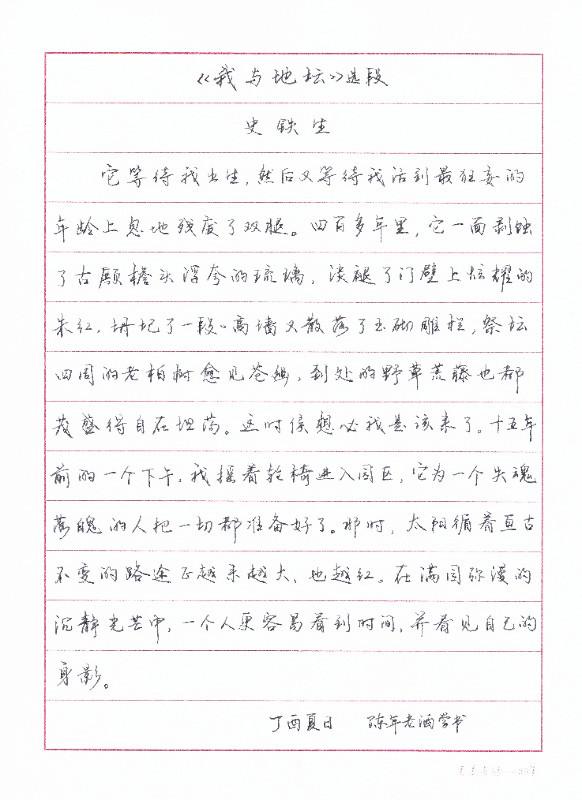 《我与地坛》选段
史铁生
它等待我出生，然后又等待我活到最狂妄的
年龄上忽地残废了双腿。四百多年里，它一面剥蚀
了古殿檐头浮夸的琉璃，淡褪了门壁上炫耀的
朱红，坍圮了一段段高墙又散落了玉砌雕栏，祭坛
四周的老柏树愈见苍幽，到处的野草荒藤也都
茂盛得自在坦荡。这时候想必我是该来了。十五年
前的一个下午，我摇着轮椅进入园区，它为一个失魂
落魄的人把一切都准备好了。那时，太阳循着亘古
不变的路途正越来越大，也越红。在满园弥漫的
沉静光芒中，一个人更容易看到时间，并看见自己的
身影。
丁酉夏日 陈年老酒学书